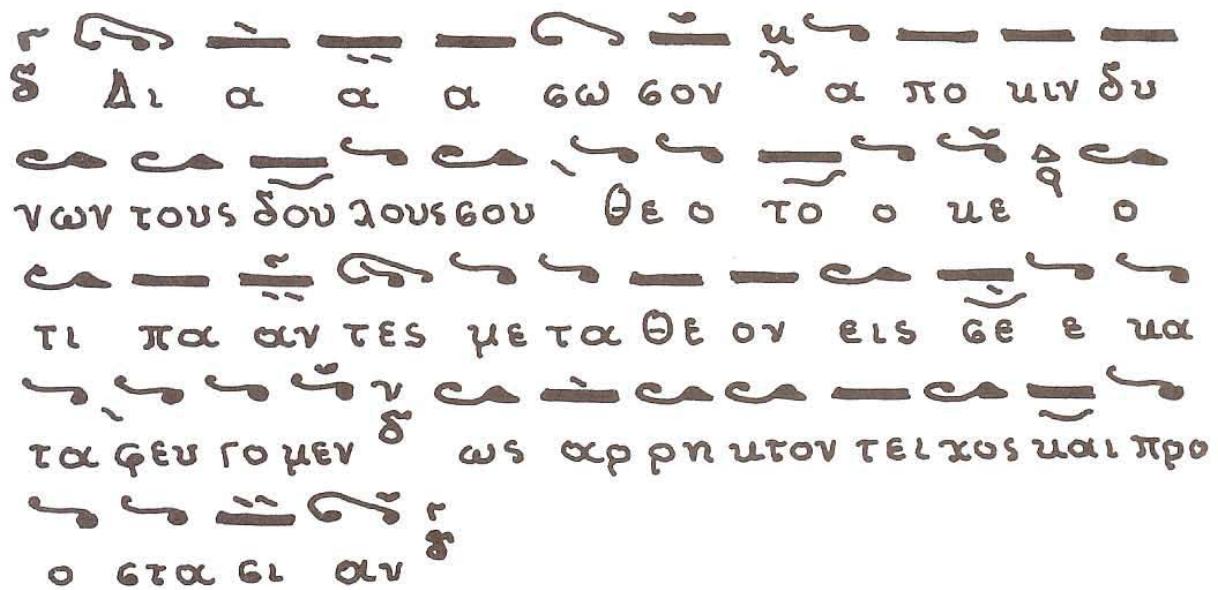 δ Δι α α α σω σον λ α πο κιν δυ
νων τους δου λους σου Θε ο το ο κε Δ ο
τι πα αν τες με τα Θε ον εις σε ε κα
τα φευ γο μεν δ ως αρ ρη κτον τει χος και προ
ο στα σι αν δ